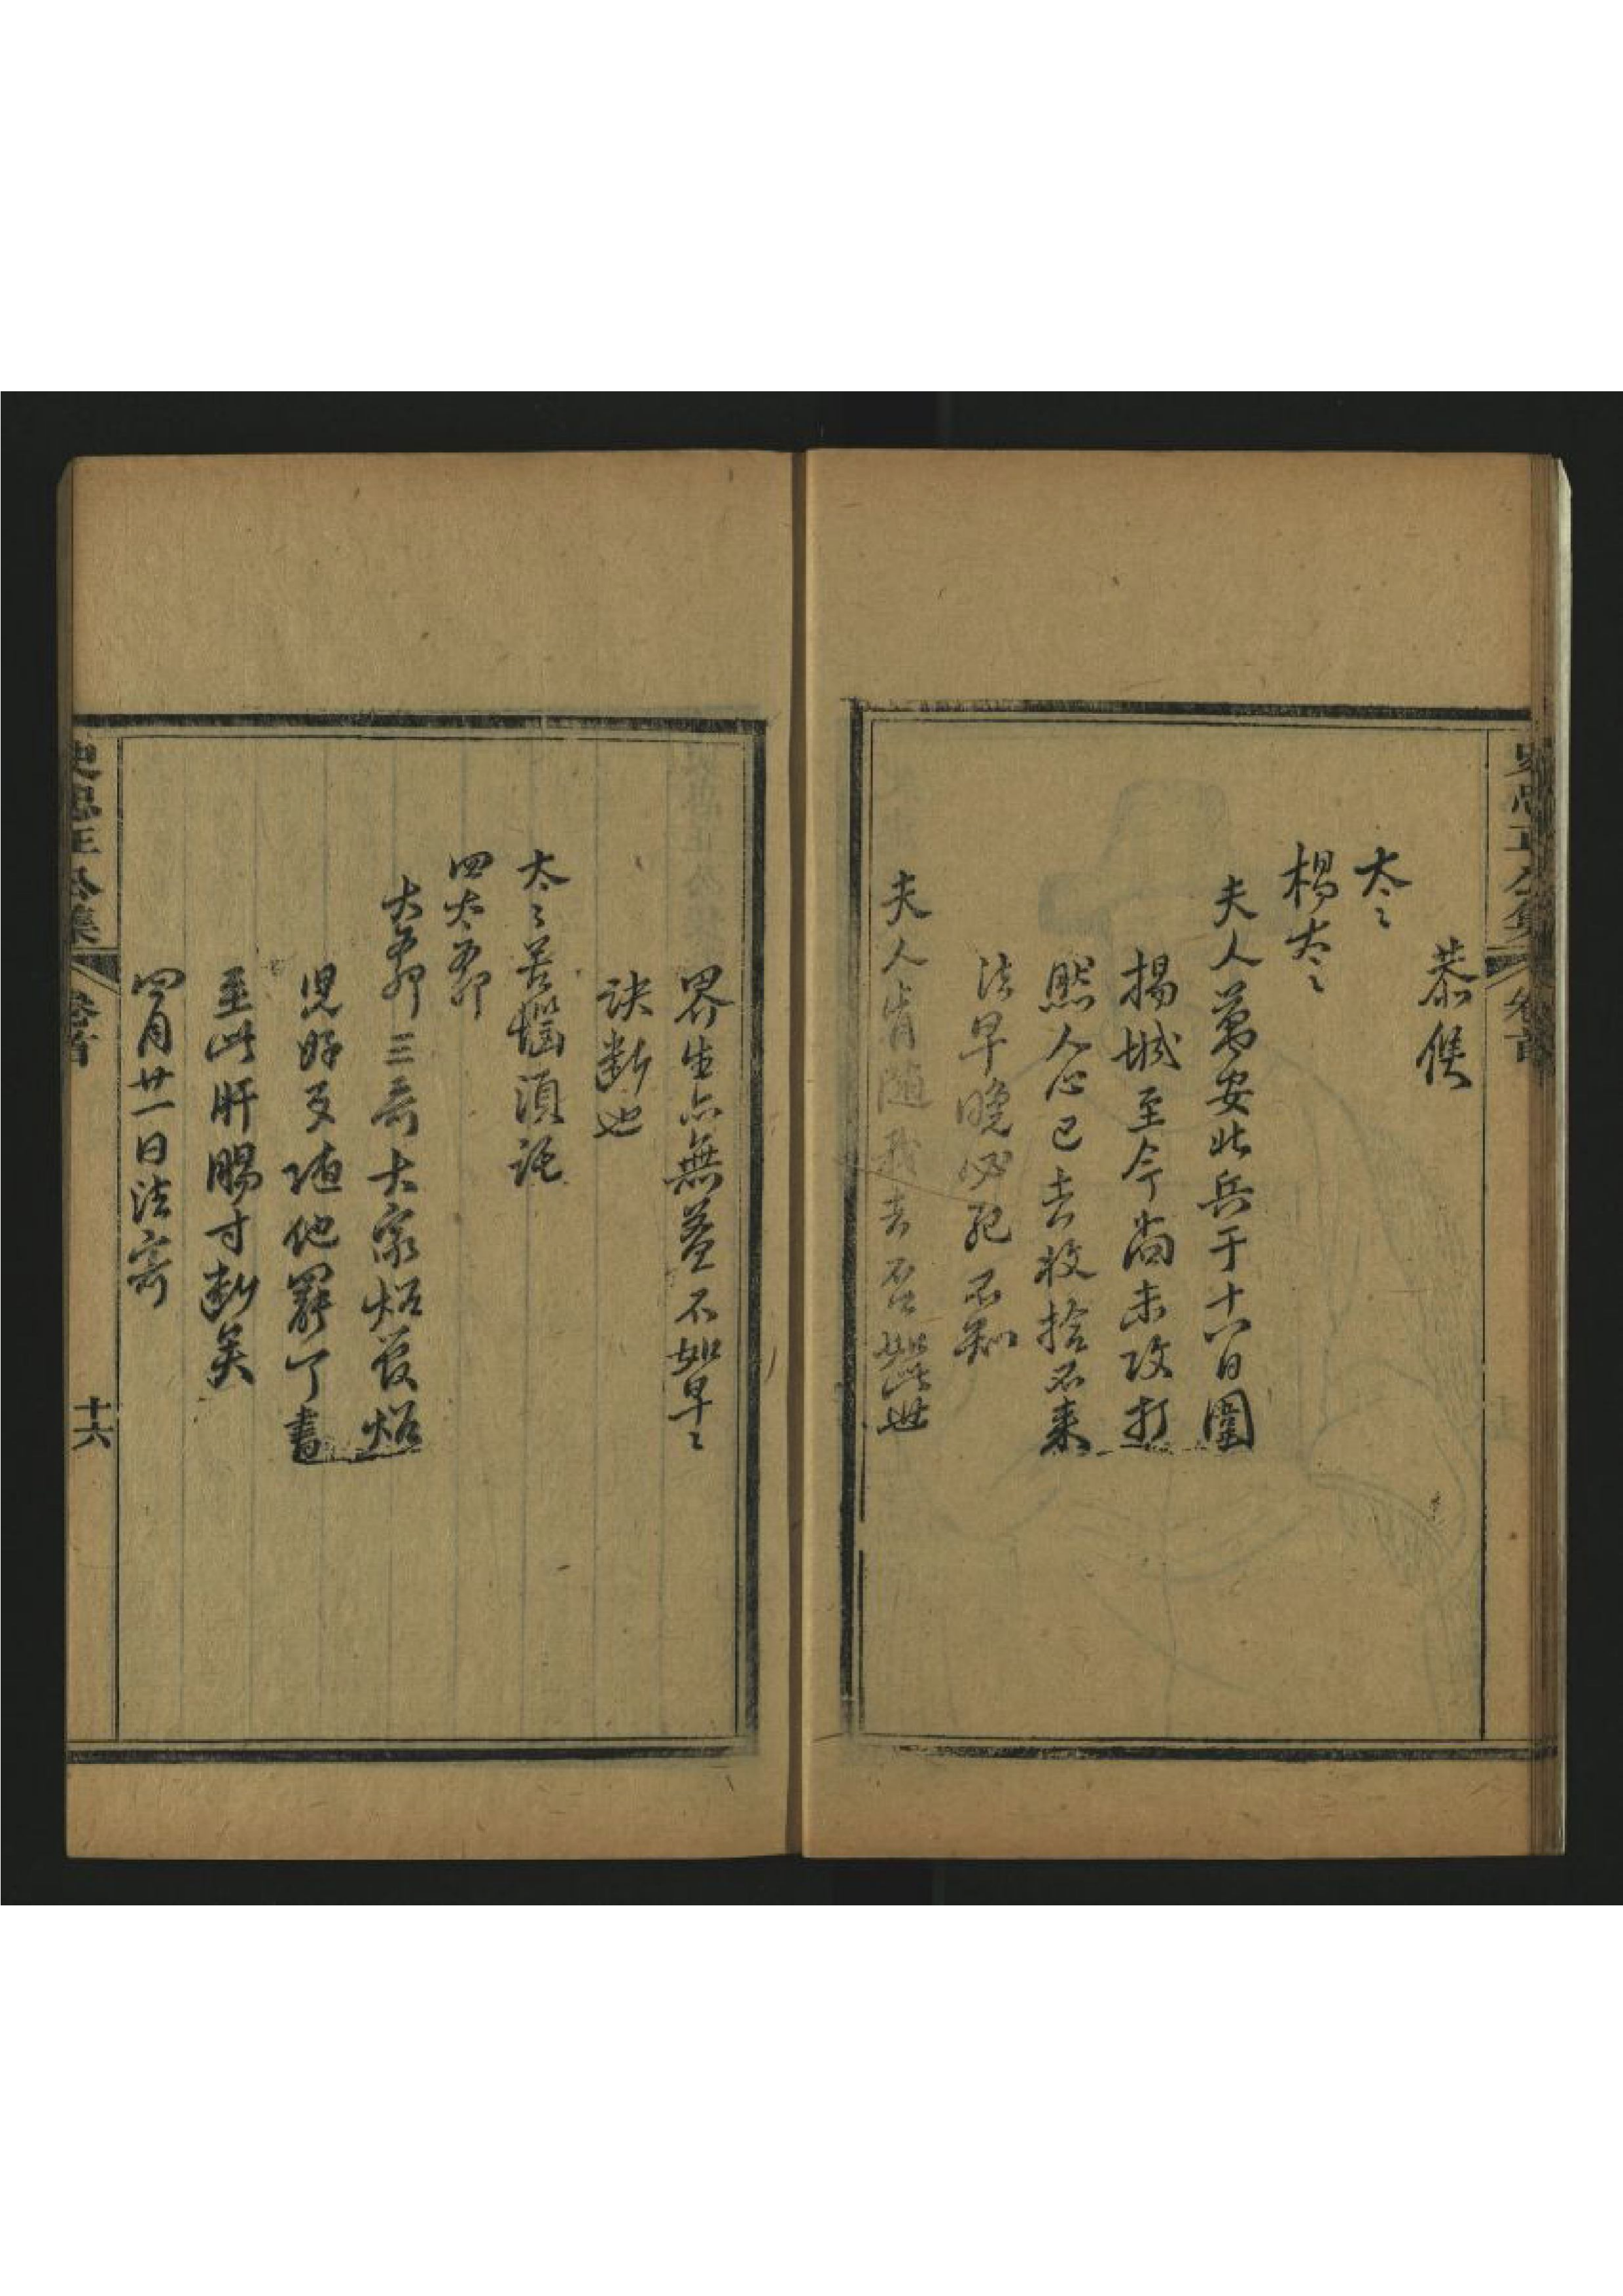 史忠正公集 卷首
恭候
太〻
楊太〻
夫人萬安北兵于十八日圍
揚城至今尚未攻打
然人心已去收捨不來
法早晚必死不知
夫人肯随我去否如此世
界生亦無益不如早〻
決断也
太〻苦惱須託
四太爺
大爺三哥大家炤管炤
児好歹随他罷了書
至此肝腸寸断矣
四月廿一日法寄
史忠正公集 卷首 十六